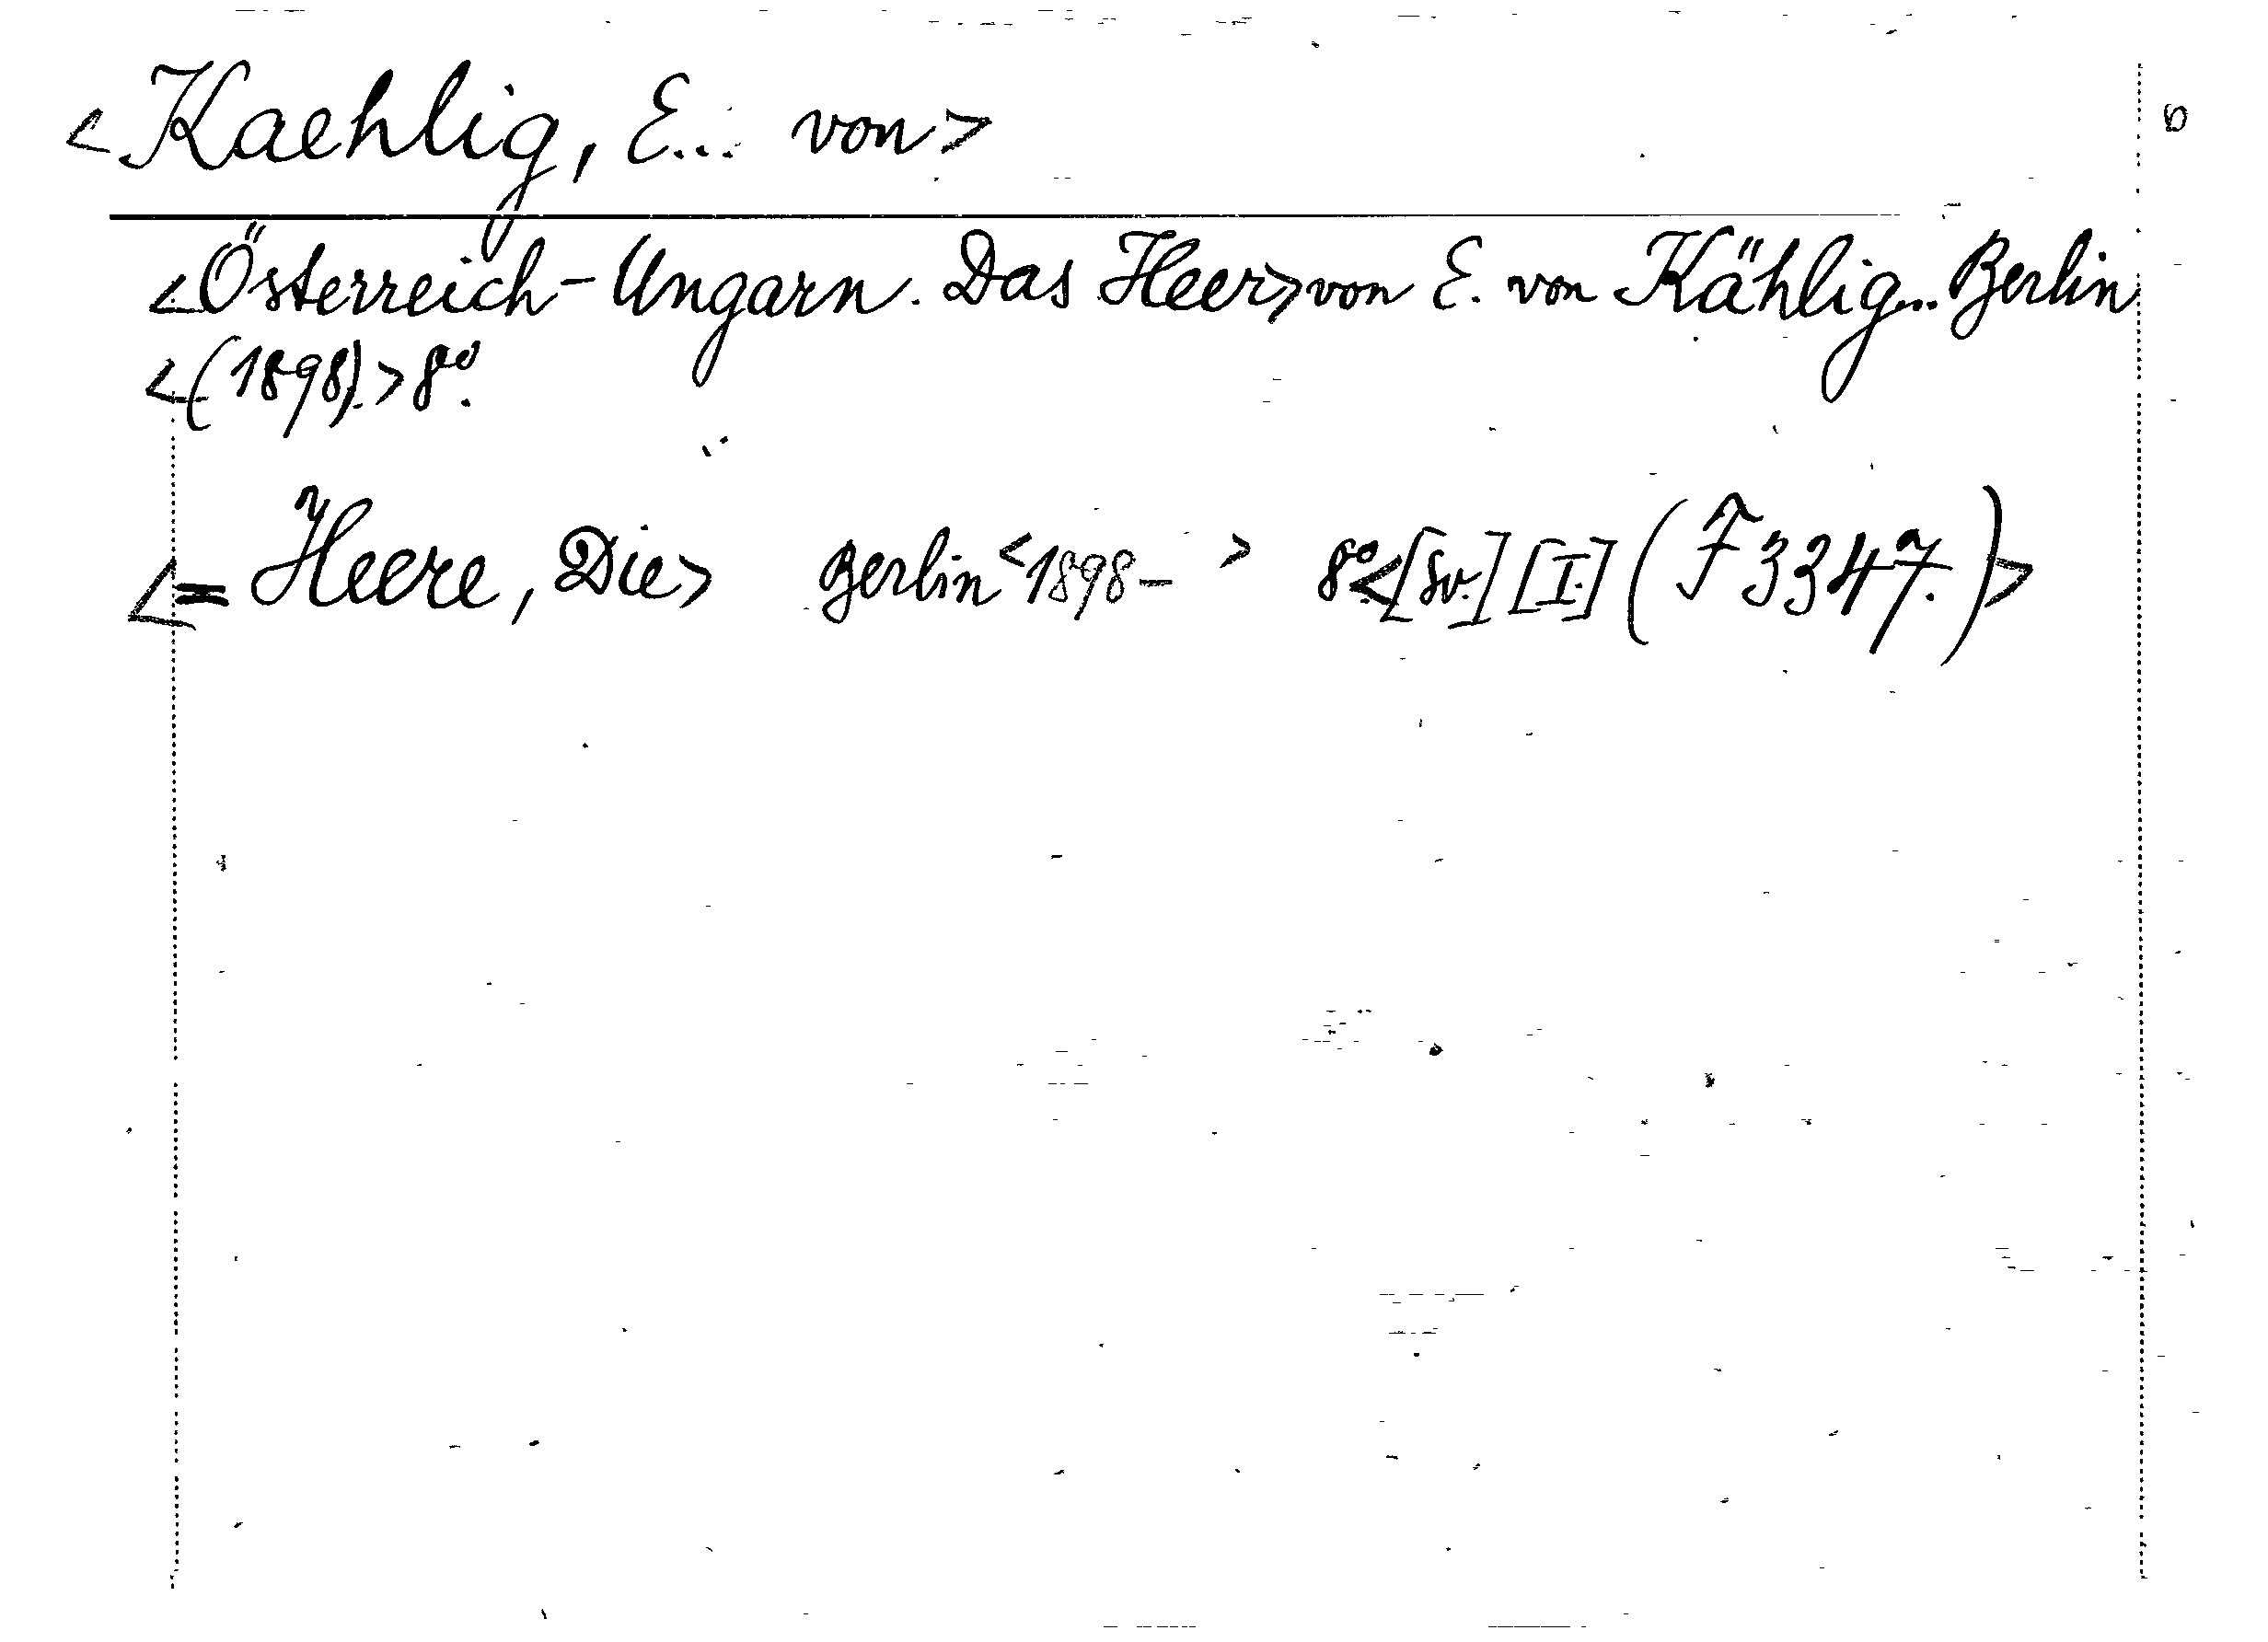 <Kaehlig, E... von> 6
<Österreich-Ungarn. Das Heer> von E. von Kählig... Berlin
<(1898).> 8º.
<= Heere, Die> Berlin <1898- > 8º.<[Sv.] [I.] (F 3347.)>